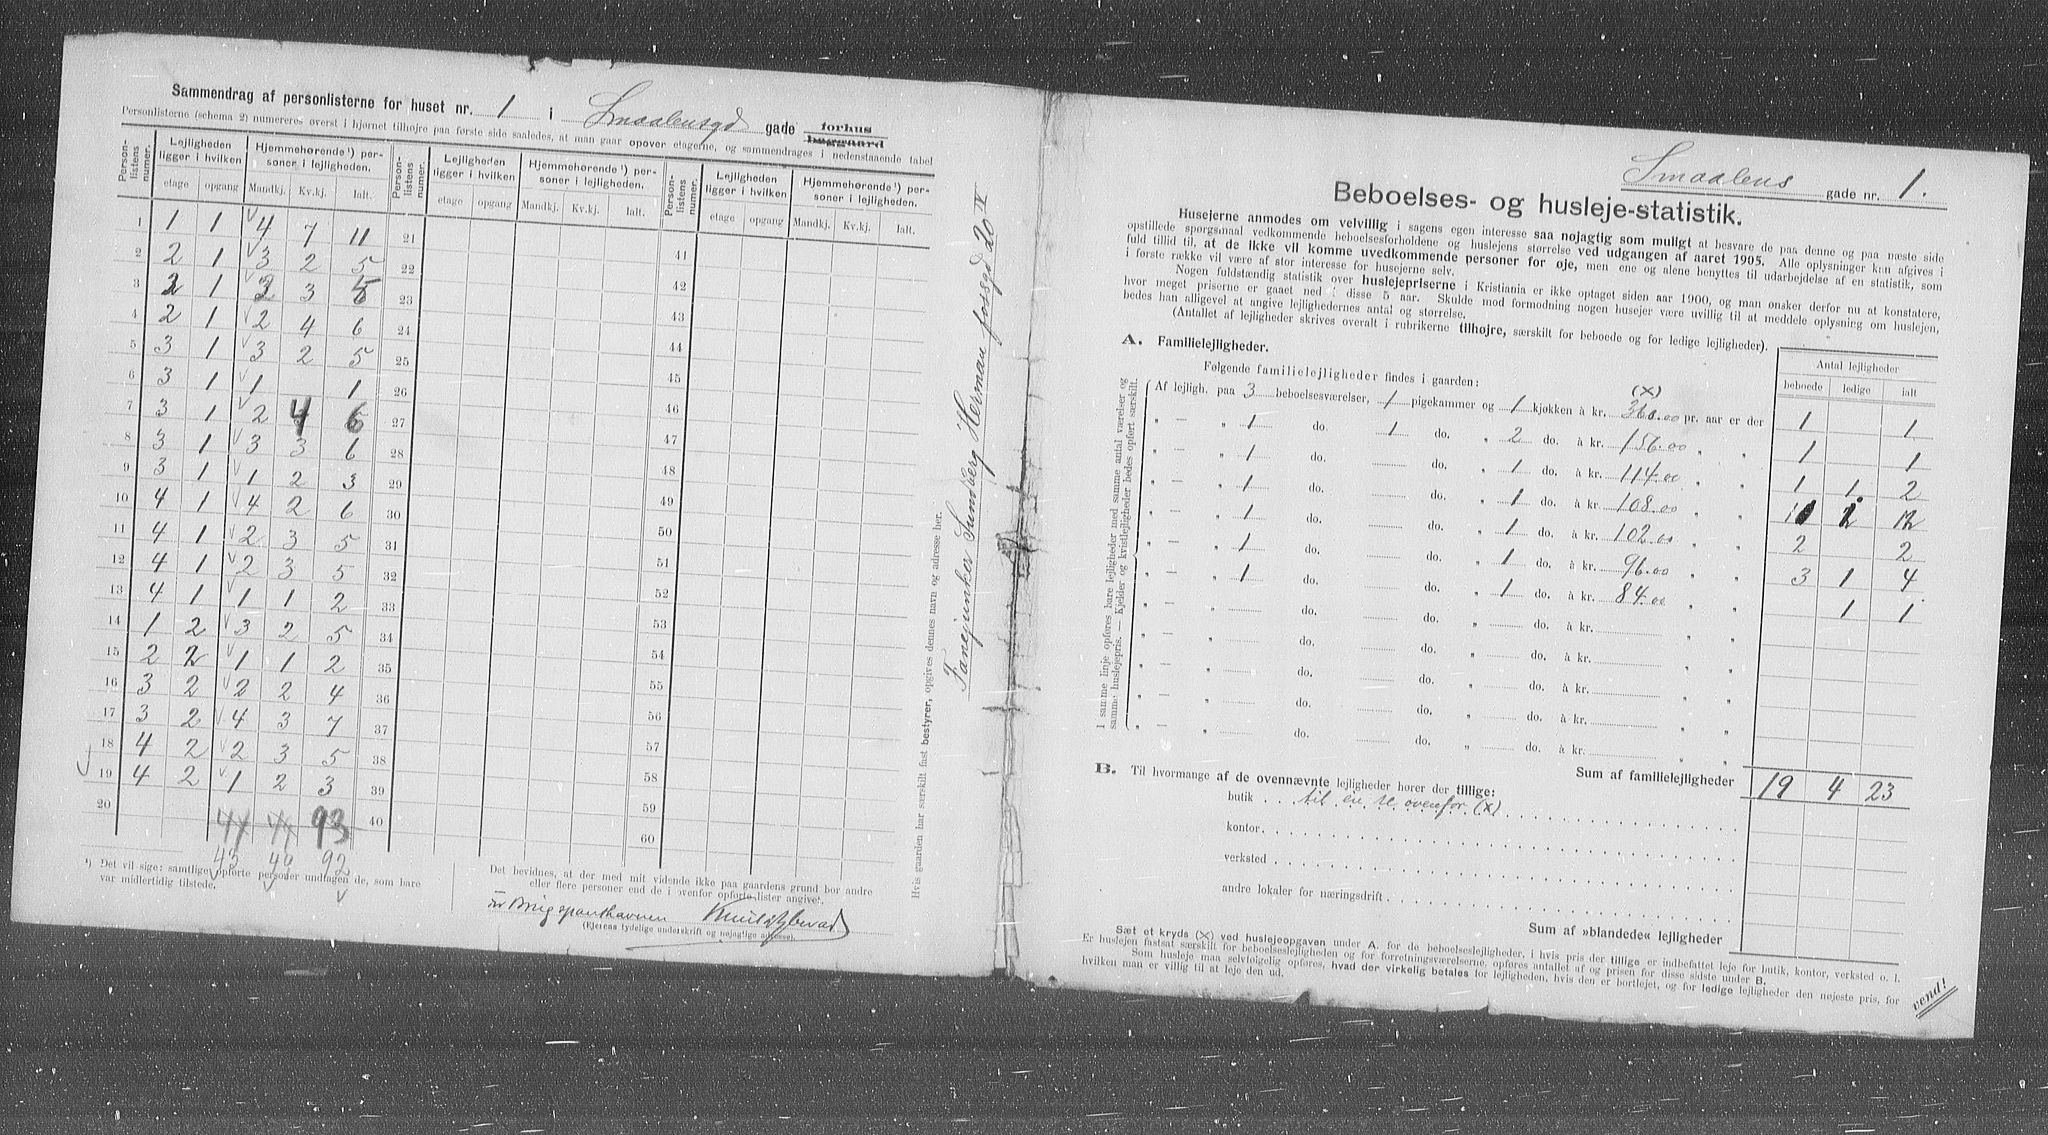 Sammendrag af personlisterne for huset nr. 1 i Smaalensgd gade forhus baggaard
Personlisterne (schema 2) numereres øverst i hjørnet tilhøjre paa første side saaledes, at man gaar opover etagerne, og sammendrages i nedenstaaende tabel
Person-listens numer. Lejligheden ligger i hvilken Hjemmehørende¹) per-soner i lejligheden. Person-listens numer. Lejligheden ligger i hvilken Hjemmehørende¹) per-soner i lejligheden. Person-listens numer. Lejligheden ligger i hvilken Hjemmehørende¹) per-soner i lejligheden.
etage opgang Mandkj. Kv.kj. Ialt. etage opgang Mandkj. Kv.kj. Ialt. etage opgang Mandkj. Kv.kj. Ialt.
1 1 1 4 7 11 21 41
2 2 1 3 2 5 22 42
3 2 1 2 3 5 23 43
4 2 1 2 4 6 24 44
5 3 1 3 2 5 25 45
6 3 1 1 1 26 46
7 3 1 2 4 6 27 47
8 3 1 3 3 6 28 48
9 3 1 1 2 3 29 49
10 4 1 4 2 6 30 50
11 4 1 2 3 5 31 51
12 4 1 2 3 5 32 52
13 4 1 1 1 2 33 53
14 1 2 3 2 5 34 54
15 2 2 1 1 2 35 55
16 3 2 2 2 4 36 56
17 3 2 4 3 7 37 57
18 4 2 2 3 5 38 58
19 4 2 1 2 3 39 59
20 93 40 60
43 49 92
¹) Det vil sige: samtlige opførte personer undtagen de, som bare
var midlertidig tilstede.
Det bevidnes, at der med mit vidende ikke paa gaardens grund bor andre
eller flere personer end de i ovenfor opførte lister angivet.
(Ejerens tydelige underskrift og nøjagtige adresse).
Hvis gaarden har særskilt fast bestyrer, opgives dennes navn og adresse her.
Fanejunker Sundberg Herman fossgd 20 IV
Smaalens gade nr. 1.
Beboelses- og husleje-statistik.
Husejerne anmodes om velvillig i sagens egen interesse saa nøjagtig som muligt at besvare de paa denne og paa næste side
opstillede spørgsmaal vedkommende beboelsesforholdene og huslejens størrelse ved udgangen af aaret 1905. Alle oplysninger kan afgives i
fuld tillid til, at de ikke vil komme uvedkommende personer for øje, men ene og alene benyttes til udarbejdelse af en statistik, som
i første række vil være af stor interesse for husejerne selv.
Nogen fuldstændig statistik over huslejepriserne i Kristiania er ikke optaget siden aar 1900, og man ønsker derfor nu at konstatere,
hvor meget priserne er gaaet ned i disse 5 aar. Skulde mod formodning nogen husejer være uvillig til at meddele oplysning om huslejen,
bedes han alligevel at angive lejlighedernes antal og størrelse.
(Antallet af lejligheder skrives overalt i rubrikerne tilhøjre, særskilt for beboede og for ledige lejligheder).
A. Familielejligheder.
Antal lejligheder
Følgende familielejligheder findes i gaarden: (X) beboede ledige ialt
I samme linje opføres bare lejligheder med samme antal værelser og
samme huslejepris. — Kjelder og kvistlejligheder bedes opført særskilt.
Af lejligh. paa 3 beboelsesværelser, 1 pigekammer og 1 kjøkken à kr. 360.00 pr. aar er der 1 1
" — " 1 do. 1 do. " 2 do. à kr. 156.00 " " 1 1
" — " 1 do. do. " 1 do. à kr. 114.00 " " 1 1 2
" — " 1 do. do. " 1 do. à kr. 108.00 " " 11 1 12
" — " 1 do. do. " 1 do. à kr. 102.00 " " 2 2
" — " 1 do. do. " 1 do. à kr. 96.00 " " 3 1 4
" — " 1 do. do. " 1 do. à kr. 84.00 " " 1 1
" — " do. do. " do. à kr. " "
" — " do. do. " do. à kr. " "
" — " do. do. " do. à kr. " "
" — " do. do. " do. à kr. " "
" — " do. do. " do. à kr. " "
Sum af familielejligheder 19 4 23
B. Til hvormange af de ovennævnte lejligheder hører der tillige:
butik til en se ovenfor (X)
kontor
verksted
andre lokaler for næringsdrift
Sum af »blandede« lejligheder
Sæt et kryds (X) ved huslejeopgaven under A. for de beboelseslejligheder, i hvis pris der tillige er indbefattet leje for butik, kontor, verksted o. l.
Er huslejen fastsat særskilt for beboelseslejligheden og for forretningsværelserne, opføres antallet af og prisen for disse sidste under B.
Som husleje maa selvfølgelig opføres, hvad der virkelig betales for lejligheden, hvis den er bortlejet, og for ledige lejligheder den nøjeste pris, for
hvilken man er villig til at leje den ud.
vend!